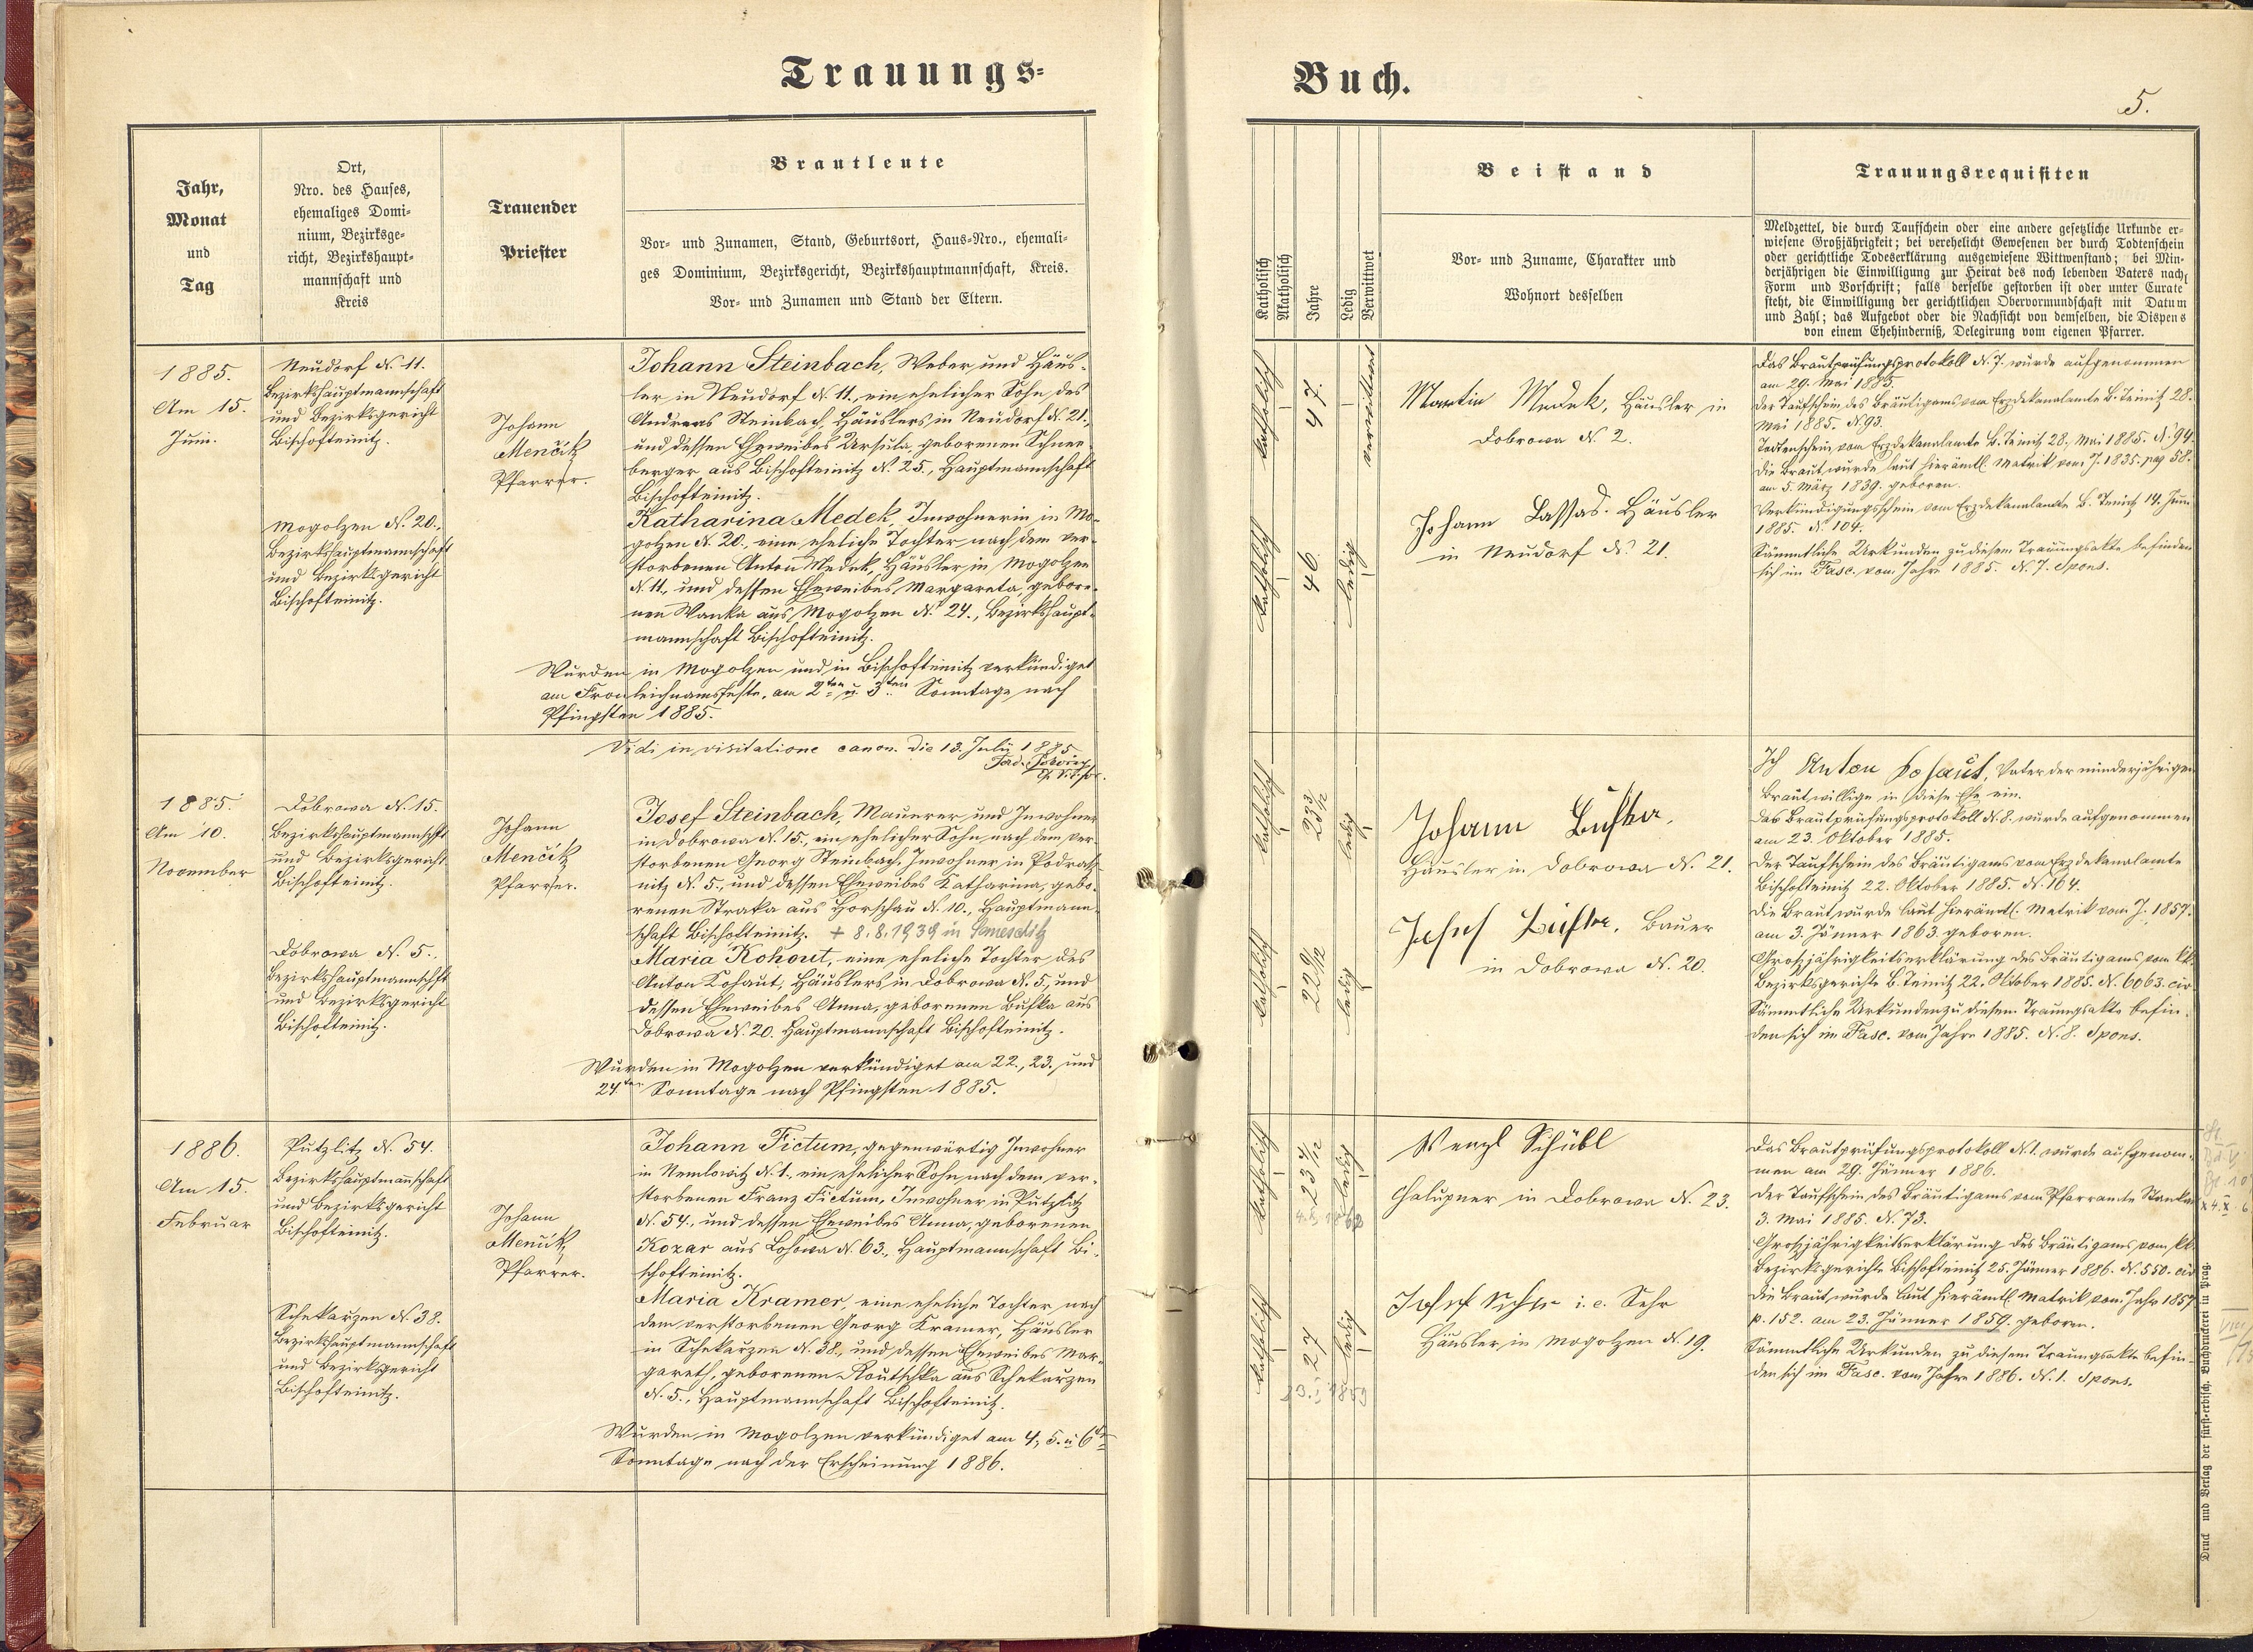 Trauungs-
Buch.
5.
Jahr,
Monat
und
Tag
Ort,
Nro. des Hauses,
ehemaliges Domi-
nium, Bezirksge-
richt, Bezirkshaupt-
mannschaft und
Kreis
Trauender
Priester
Brautleute
Vor- und Zunamen, Stand, Geburtsort, Haus-Nro., ehemali-
ges Dominium, Bezirksgericht, Bezirkshauptmannschaft, Kreis.
Vor- und Zunamen und Stand der Eltern.
Katholisch
Akatholisch
Jahre
Ledig
Verwittwet
Beistand
Vor- und Zuname, Charakter und
Wohnort desselben
Trauungsrequisiten
Meldzettel, die durch Taufschein oder eine andere gesetzliche Urkunde er-
wiesene Großjährigkeit; bei verehelicht Gewesenen der durch Todtenschein
oder gerichtliche Todeserklärung ausgewiesene Wittwenstand; bei Min-
derjährigen die Einwilligung zur Heirat des noch lebenden Vaters nach
Form und Vorschrift; falls derselbe gestorben ist oder unter Curate
steht, die Einwilligung der gerichtlichen Obervormundschaft mit Datum
und Zahl; das Aufgebot oder die Nachsicht von demselben, die Dispens
von einem Ehehinderniß, Delegirung vom eigenen Pfarrer.
1885.
Am 15.
Juni.
Neudorf N. 11.
Bezirkshauptmannschaft
und Bezirksgericht
Bischofteinitz.
Mogolzen N. 20.,
Bezirkshauptmannschaft
und Bezirksgericht
Bischofteinitz.
Johann
Menčik
Pfarrer.
Johann Steinbach, Weber und Häus-
ler in Neudorf N. 11., ein ehelicher Sohn des
Andreas Steinbach, Häuslers in Neudorf N. 21.,
und dessen Eheweibes Ursula, geborenen Schnee-
berger aus Bischofteinitz N. 25., Hauptmannschaft
Bischofteinitz.
Katharina Medek, Inwohnerin in Mo-
golzen N. 20., eine eheliche Tochter nach dem ver-
storbenen Anton Medek, Häusler in Mogolzen
N. 11., und dessen Eheweibes Margareta, gebore-
nen Wanka aus Mogolzen N. 24., Bezirkshaupt-
mannschaft Bischofteinitz.
Wurden in Mogolzen und in Bischofteinitz verkündiget
am Fronleichnamsfeste, am 2ten u. 3ten Sonntage nach
Pfingsten 1885.
katholisch
47.
verwittwet
katholisch
46.
ledig
Martin Medek, Häusler in
Dobrowa N. 2.
Johann Lassas. Häusler
in Neudorf N. 21.
Das Brautprüfungsprotokoll N. 7. wurde aufgenommen
am 29. Mai 1885.
Der Taufschein des Bräutigams vom Erzdekanalamte B. Teinitz 28.
Mai 1885. N. 93.
Todtenschein vom Erzdekanalamte B. Teinitz 28. Mai 1885. N. 94.
Die Braut wurde laut hierämtl. Matrik vom J. 1835. pag 58.
am 5. März 1839. geboren.
Verkündigungsschein vom Erzdekanalamte B. Teinitz 14. Juni
1885. N. 104.
Sämmtliche Urkunden zu diesem Trauungsakte befinden
sich im Fasc. vom Jahre 1885. N. 7. Spons.
Vidi in visitatione canon. die 13. July 1885.
1885.
Am 10.
November
Dobrowa N. 15.
Bezirkshauptmannschft
und Bezirksgericht
Bischofteinitz.
Dobrowa N. 5.,
Bezirkshauptmannschft
und Bezirksgericht
Bischofteinitz.
Johann
Menčik
Pfarrer.
Josef Steinbach, Maurer und Inwohner
in Dobrowa N. 15., ein ehelicher Sohn nach dem ver-
storbenen Georg Steinbach, Inwohner in Podras-
nitz N. 5., und dessen Eheweibes Katharina, gebo-
renen Straka aus Horschau N. 10., Hauptmann-
schaft Bischofteinitz. + 8.8.1939 in
Maria Kohout, eine eheliche Tochter des
Anton Kohaut, Häuslers in Dobrowa N. 5., und
dessen Eheweibes Anna, geborenen Buska aus
Dobrowa N. 20. Hauptmannschaft Bischofteinitz.
Wurden in Mogolzen verkündiget am 22., 23. und
24ten Sonntage nach Pfingsten 1885.
katholisch
23 3/12
ledig
katholisch
22 9/12
ledig
Johann
Häusler in Dobrowa N. 21.
Josef Bauer
in Dobrowa N. 20.
Ich Anton Kohaut, Vater der minderjährigen
Braut willige in diese Ehe ein.
Das Brautprüfungsprotokoll N. 8. wurde aufgenommen
am 23. Oktober 1885.
Der Taufschein des Bräutigams vom Erzdekanalamte
Bischofteinitz 22. Oktober 1885. N. 164.
Die Braut wurde laut hierämtl. Matrik vom J. 1857.
am 3. Jänner 1863. geboren.
Großjährigkeitserklärung des Bräutigams vom kk.
Bezirksgerichte B. Teinitz 22. Oktober 1885. N. 6063. civ.
Sämmtliche Urkunden zu diesem Trauungsakte befin-
den sich im Fasc. vom Jahre 1885. N. 8. Spons.
1886.
Am 15.
Februar
Putzlitz N. 54.
Bezirkshauptmannschaft
und Bezirksgericht
Bischofteinitz.
Schekarzen N. 38.
Bezirkshauptmannschaft
und Bezirksgericht
Bischofteinitz.
Johann
Menčik
Pfarrer.
Johann Fictum, gegenwärtig Inwohner
in Nemlowitz N. 1., ein ehelicher Sohn nach dem ver-
storbenen Franz Fictum, Inwohner in Putzlitz
N. 54., und dessen Eheweibes Anna, geborenen
Kozar aus Lohowa N. 63., Hauptmannschaft Bi-
schofteinitz.
Maria Kramer, eine eheliche Tochter nach
dem verstorbenen Georg Kramer, Häusler
in Schekarzen N. 38., und dessen Eheweibes Mar-
gareth, geborenen Koutschka aus Schekarzen
N. 5., Hauptmannschaft Bischofteinitz.
Wurden in Mogolzen verkündiget am 4., 5. u. 6ten
Sonntage nach der Erscheinung 1886.
katholisch
23 4/12
ledig
katholisch
27
ledig
Wenzl Schübl
Chalupner in Dobrowa N. 23.
Josef i.e. Sehr
Häusler in Mogolzen N. 19.
Das Brautprüfungsprotokoll N. 1. wurde aufgenom-
men am 29. Jänner 1886.
Der Taufschein des Bräutigams vom Pfarramte Stankau
3. Mai 1885. N. 73.
Großjährigkeitserklärung des Bräutigams vom kk.
Bezirksgerichte Bischofteinitz 25. Jänner 1886. N. 550. civ
Die Braut wurde laut hierämtl. Matrik vom Jahr 1857
p. 152. am 23. Jänner 1859. geboren.
Sämmtliche Urkunden zu diesem Trauungsakte befin-
den sich im Fasc. vom Jahre 1886. N. 1. Spons.
Druck und Verlag der fürst-erzbisch. Buchdruckerei in Prag.